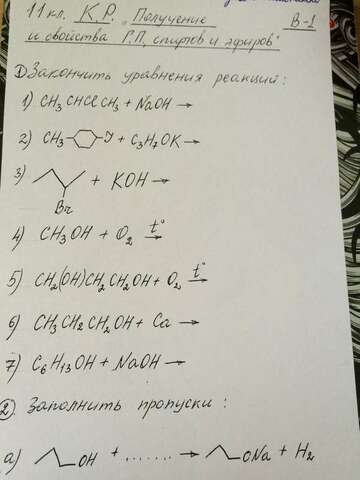 11 кл. К.Р. „Получение В-1
и свойства Г.П, спиртов и эфиров"
1) Закончить уравнения реакций:
1) CH3CHClCH3 + NaOH →
2) CH3 J + C3H7OK →
3) + KOH →
Br
4) CH3OH + O2 t° →
5) CH2(OH)CH2CH2OH + O2 t° →
6) CH3CH2CH2OH + Ca →
7) C6H13OH + NaOH →
2) Заполнить пропуски:
а) OH + ....... → ONa + H2